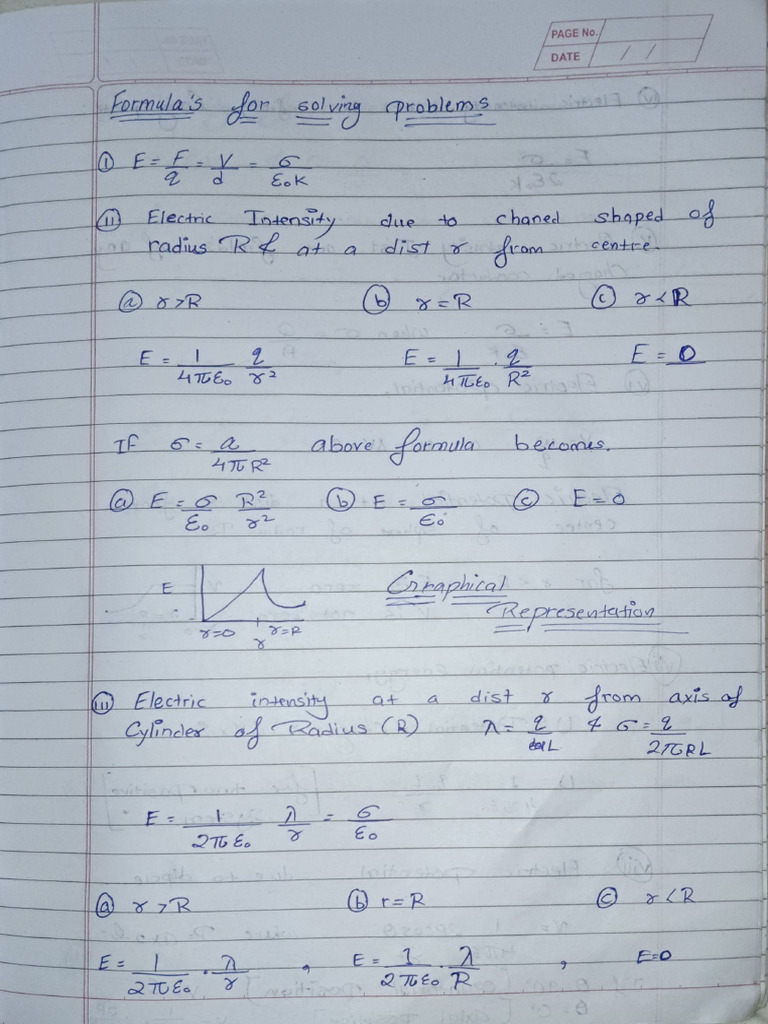 PAGE No.
DATE / /
Formula's for solving problems
① E = F/q = V/d = σ/ε₀K
ⓘⓘ Electric Intensity due to chaned shaped of
radius R & at a dist r from centre.
ⓐ r>R ⓑ r=R ⓒ r<R
E = 1/4πε₀ q/r² E = 1/4πε₀ . q/R² E = 0
If σ = a/4πR² above formula becomes.
ⓐ E = σ/ε₀ R²/r² ⓑ E = σ/ε₀ ⓒ E=0
E Graphical
Representation
r=0 r=R
r
ⓘⓘⓘ Electric intensity at a dist r from axis of
Cylinder of Radius (R) λ = q/L & σ = q/2πRL
E = 1/2πε₀ λ/r = σ/ε₀
ⓐ r>R ⓑ r=R ⓒ r<R
E = 1/2πε₀ . λ/r , E = 1/2πε₀ . λ/R , E=0